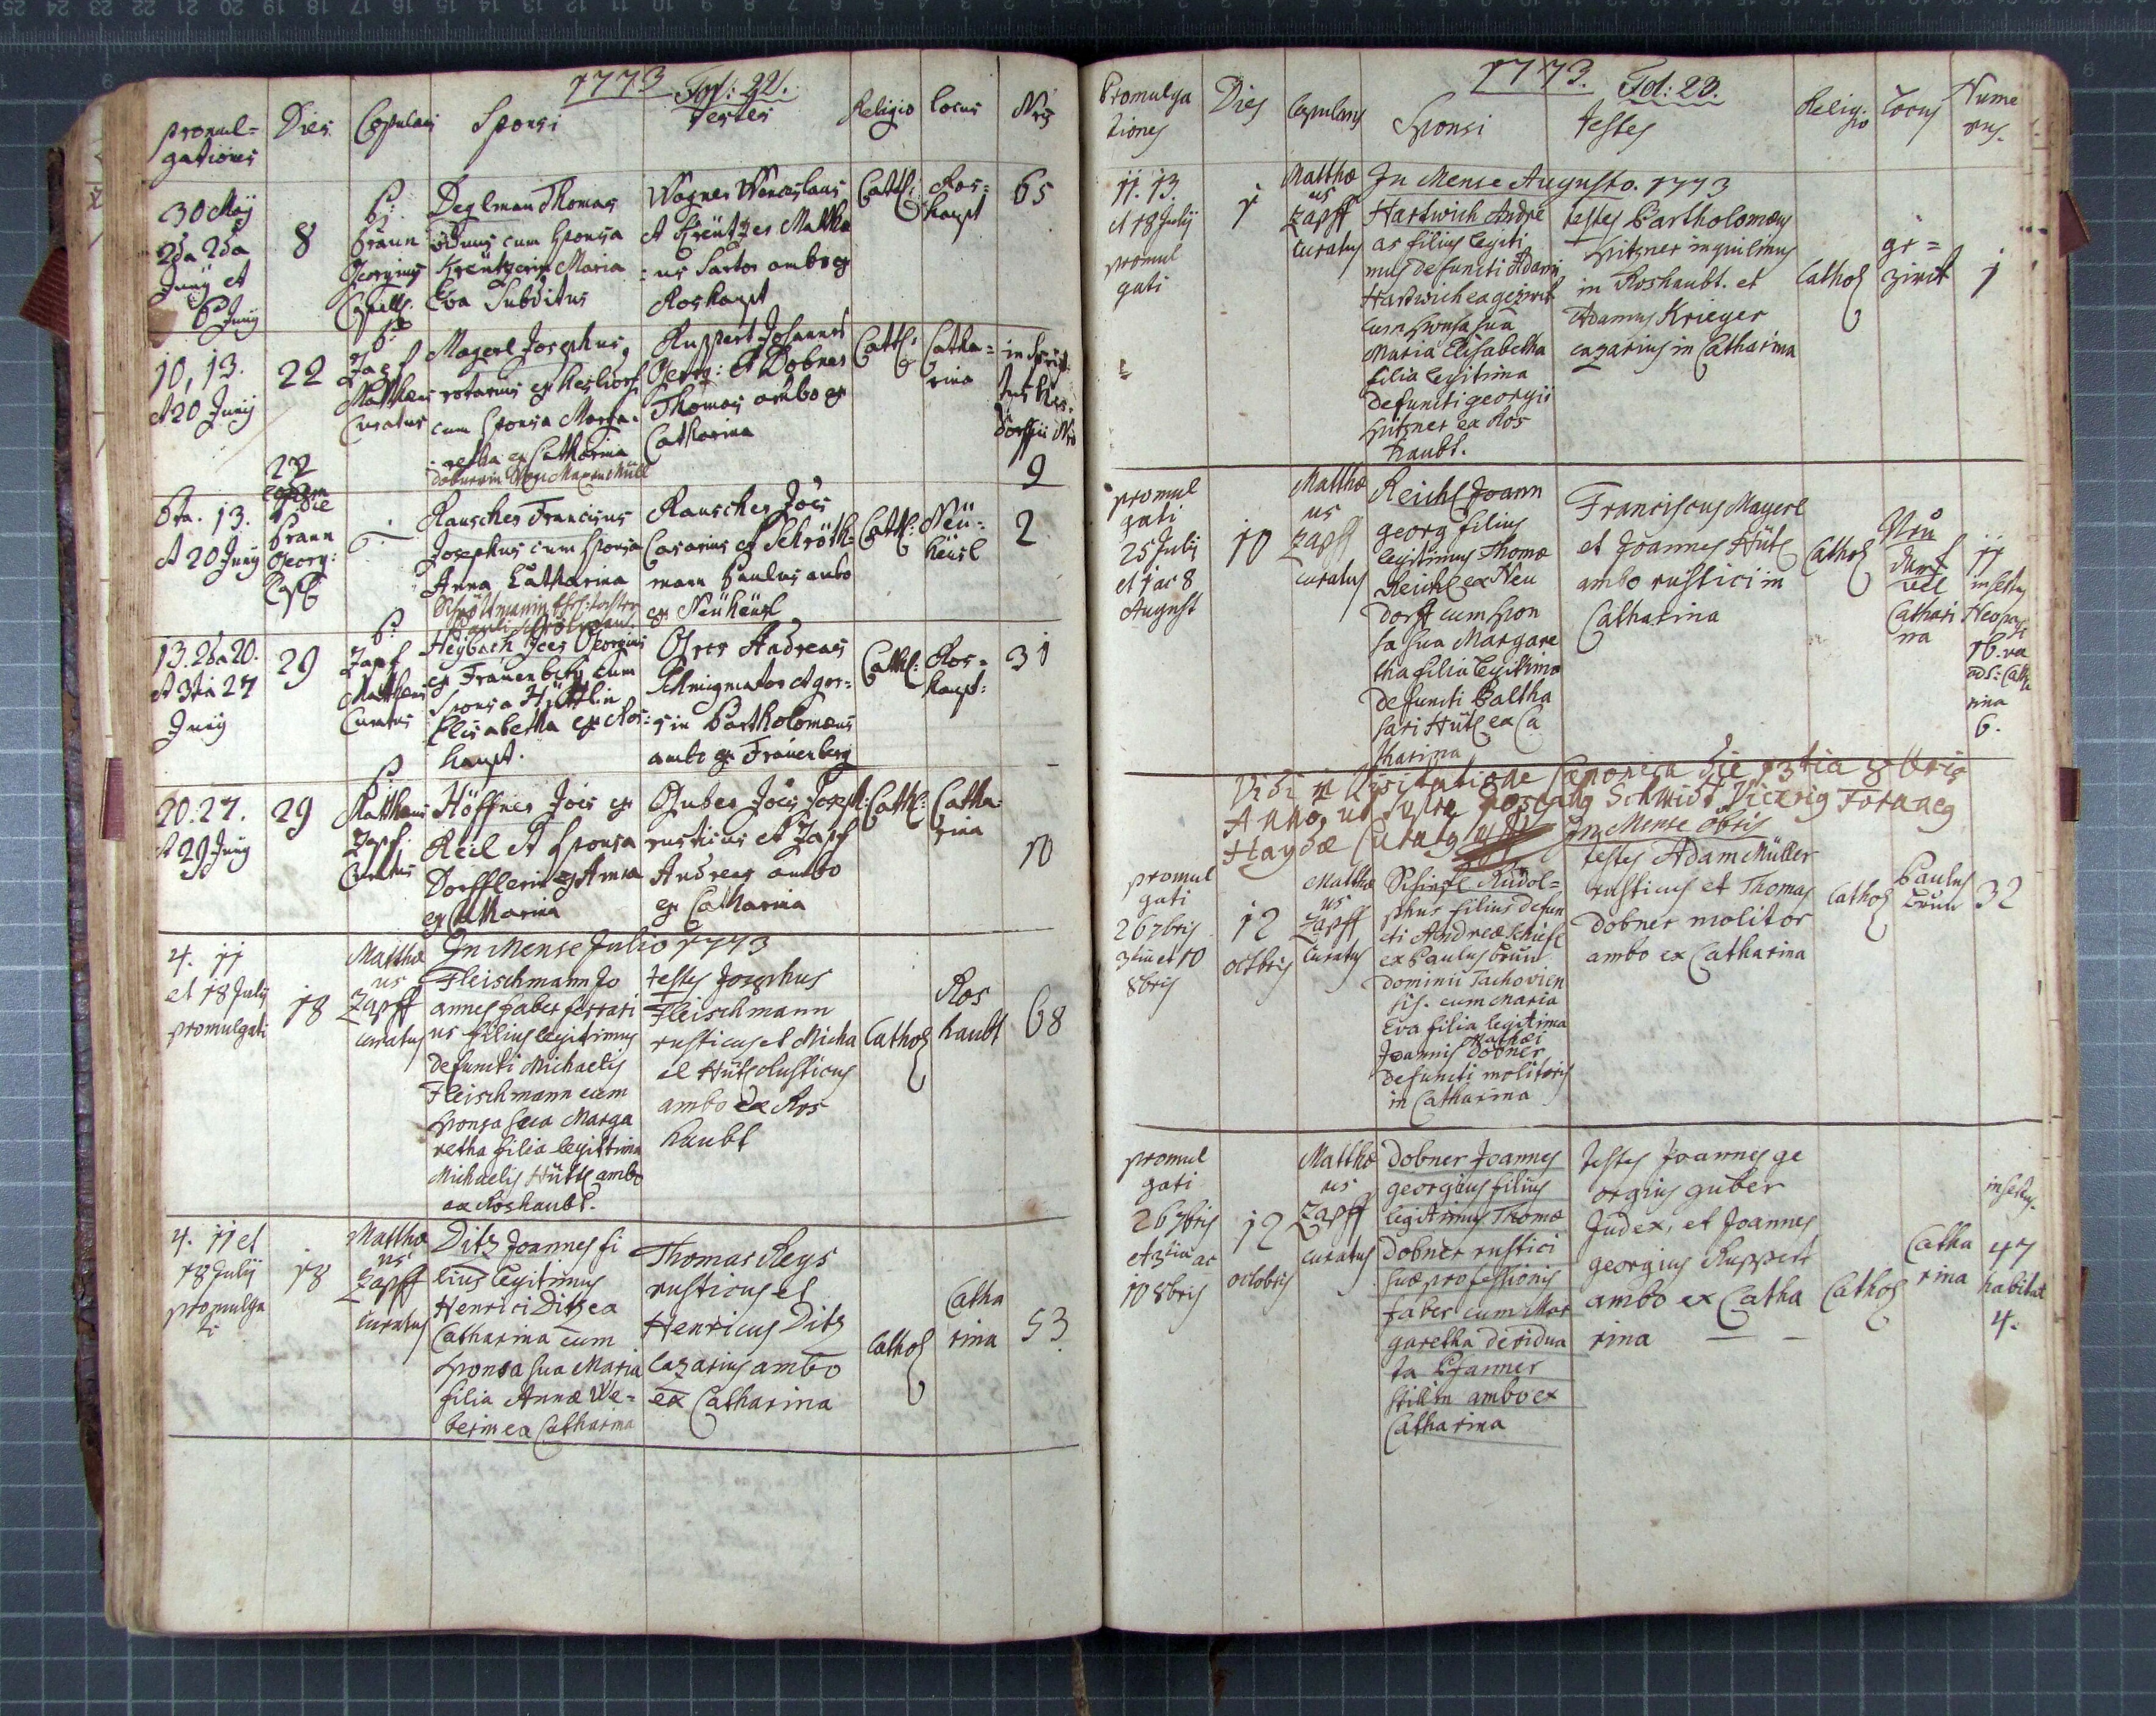 1773 Fol: 22.
promul= Dies Copulans Sponsi Testes Religio Locus Nrs
gationes
30 Maÿ
2da 2da
Junÿ et
6 Junÿ
8
P:
Braun
Georgius
Capell.
Deglman Thomas
viduus cum Sponsa
Kreutzerin Maria
Eva Subditus
Wagner Wenceslaus
et Kreutzer Matthæ
us Sartor ambo ex
Roshaupt
Cath:
Ros=
haupt
65
10, 13.
et 20 Junÿ
22
P:
Zapf
Matthæus
Curatus
Magerl Josephus
rotarius ex
cum Sponsa Marga=
retha ex Catharina
Ruppert Johannes
Georg: et Dobner
Thomas ambo ex
Catharina
Cath:
Catha=
rina
9
6ta. 13.
et 20 Junÿ
22
eodem
die
Braun
Georg:
Cap
Rauscher Franciscus
Josephus cum Sponsa
Anna Catharina
Rauscher Jois
Casarius et Schrött=
mann Paulus ambo
ex Neuheusl
Cath:
Neü=
heusl
2
13. 2da 20.
et 3tia 27
Junÿ
29
P:
Zapf
Matthæus
Curatus
Heybach Jois Georgius
ex Frauenberg cum
Sponsa Hüttlin
Elisabetha ex Ros=
haupt.
Andreas
et
Bartholomæus
ambo ex Frauenberg
Cath:
Ros=
haupt:
31
20. 27.
et 29 Junÿ
29
P
Matthæus
Zapf
Curatus
Höffner Jois ex
Reil et Sponsa
Dorfflerin Anna
ex Catharina
Guber Jois Joseph:
rusticus et Zapf
Andreas ambo
ex Catharina
Cath:
Catha=
rina
10
In Mense Julio 1773
4. 11
et 18 Julÿ
promulgati
18
Matthæ
us
Zapff
curatus
Fleischmann Jo
annes faber ferrari
us filius legitimus
defuncti Michaelis
Fleischmann cum
sponsa sua Marga
retha filia legittima
Michaelis Hütl ambo
ex Roshaubt.
testes Josephus
Fleischmann
rusticus et Micha
el Hütl rusticus
ambo ex Ros
haubt
Cathol
Ros
haubt
68
4. 11 et
18 Julÿ
promulga
ti
18
Matthæ
us
Zapff
curatus
Ditz Joannes fi
lius legitimus
Henrici Ditz ex
Catharina cum
sponsa sua Maria
filia Annæ We=
berin ex Catharina
Thomas Reys
rusticus et
Henricus Ditz
cazarius ambo
ex Catharina
Cathol
Catha
rina
53
1773. Fol: 23.
Promulga Dies Copulans Sponsi testes Religi Locus Nume
tiones io rus.
In Mense Augusto. 1773
11. 13.
et 18 Julÿ
promul
gati
1
Matthæ
us
Zapff
curatus
Hartwich Andre
as filius legiti
mus defuncti Adami
Hartwich ex gezirit
cum sponsa sua
Maria Elisabetha
filia legitima
defuncti georgii
Spitzner ex Ros
haubt.
testes Bartholomæus
Spitzner inquilinus
in Roshaubt. et
Adamus Krieger
cazarius in Catharina
Cathol
ge=
zirit
1
promul
gati
25 Julÿ
et 1 ac 8
August
10
Matthæ
us
Zapff
curatus
Reichl Joann
georg filius
legitimus Thomæ
Reichl ex Neu
dorff cum spon
sa sua Margare
tha filia legitima
defuncti Baltha
sari Hütl ex Ca
tharina
Franciscus Mayerl
et Joannes Hütl
ambo rustici in
Catharina
Cathol
Neu
durf
vel
Cathari
na
11
6.
Vidi in Visitatione Canonica die 13tia 8bris
Anno ut supra Schmidt Vicarius Foraneus
Haydæ Curatus
In Mense 8bris
promul
gati
26 7bris
3tia et 10
8bris
12
octbris
Matthæ
us
Zapff
Curatus
Schiefl Rudol=
phus filius defun
cti Andreæ Schiefl
ex Paulus brun
Dominii Tachovien
sis. cum Maria
Eva filia legitima
Mathæi
Joannis Dobner
defuncti molitoris
in Catharina
testes Adam Müller
rusticus et Thomas
Dobner molitor
ambo ex Catharina
Cathol
Paulus
brun
32
promul
gati
26 7bris
et 3tia ac
10 8bris
12
octobris
Matthæ
us
Zapff
curatus
Dobner Joannes
georgius filius
legitimus Thomæ
Dobner rustici
suæ professionis
faber cum Mar
garetha deridua
ta Pfanner
stillin ambo ex
Catharina
testes Joannes ge
orgius guber
Judex, et Joannes
georgius Ruppert
ambo ex Catha
rina
Cathol
Catha
rina
47
habitat
4.